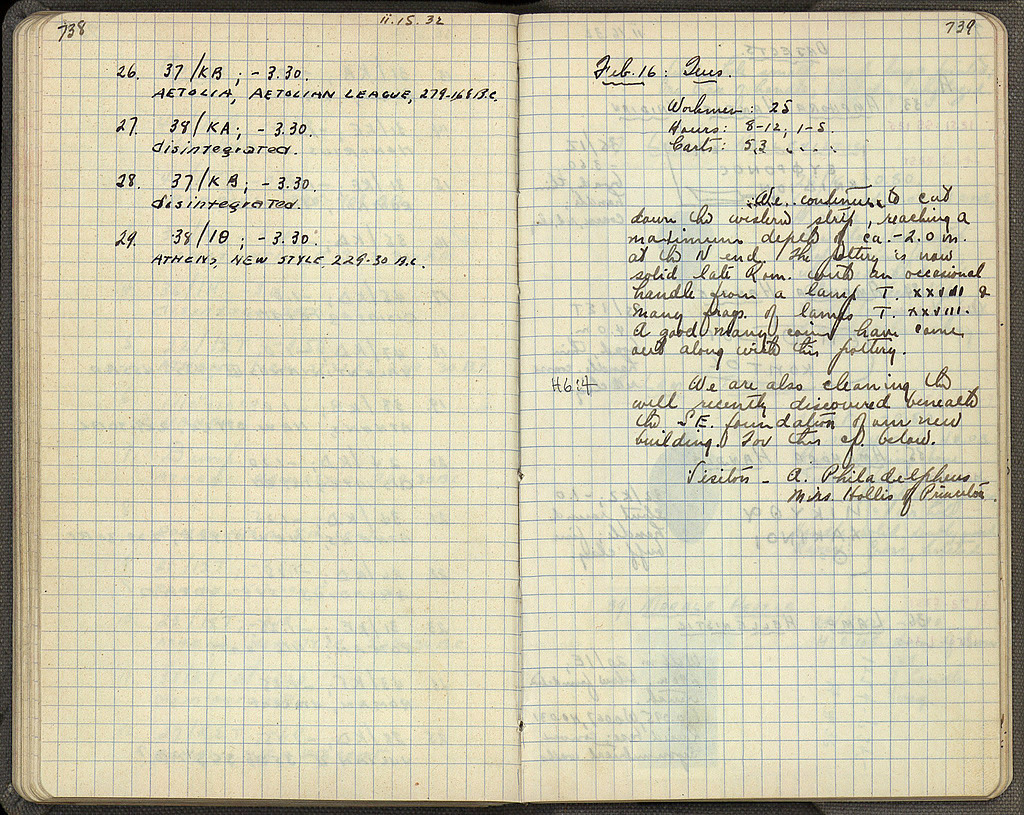 738
ii.15.32
26. 37/KB ; -3.30.
AETOLIA, AETOLIAN LEAGUE, 279-168 B.C.
27. 38/KA ; -3.30.
disintegrated.
28. 37/KB ; -3.30.
disintegrated.
29. 38/ΙΘ ; -3.30.
ATHENS, NEW STYLE, 229-30 B.C.
739
Feb. 16 : Tues.
Workmen : 25
Hours : 8-12, 1-5.
Carts : 53
We continue to cut
down the western strip, reaching a
maximum depth of ca. -2.0 m.
at the N end. The pottery is now
solid late Rom. with an occasional
handle from a lamp T. XXVIII &
many frags. of lamps T. XXVIII.
A good many coins have come
out along with this pottery.
H6:4 We are also cleaning the
well recently discovered beneath
the SE. foundation of our new
building. For this cf. below.
Visitors - A. Philadelpheus
Mrs. Hollis of Princeton.